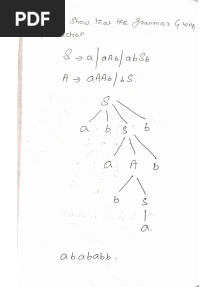 PDF
Show that the grammar G with
ction
S → a | aAb | abSb
A → aAAb | bS.
S
a b S b
a A b
b S
a
abababb.